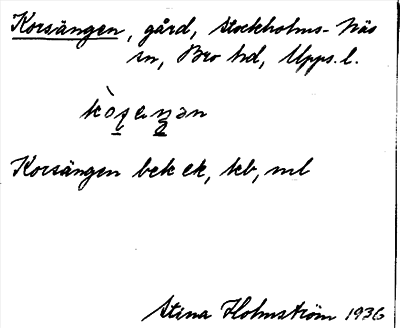 Korsängen, gård, Stockholms-Näs
sn, Bro hd, Upps. l.
Korsängen bek ek, kb, ml
Stina Holmström 1936